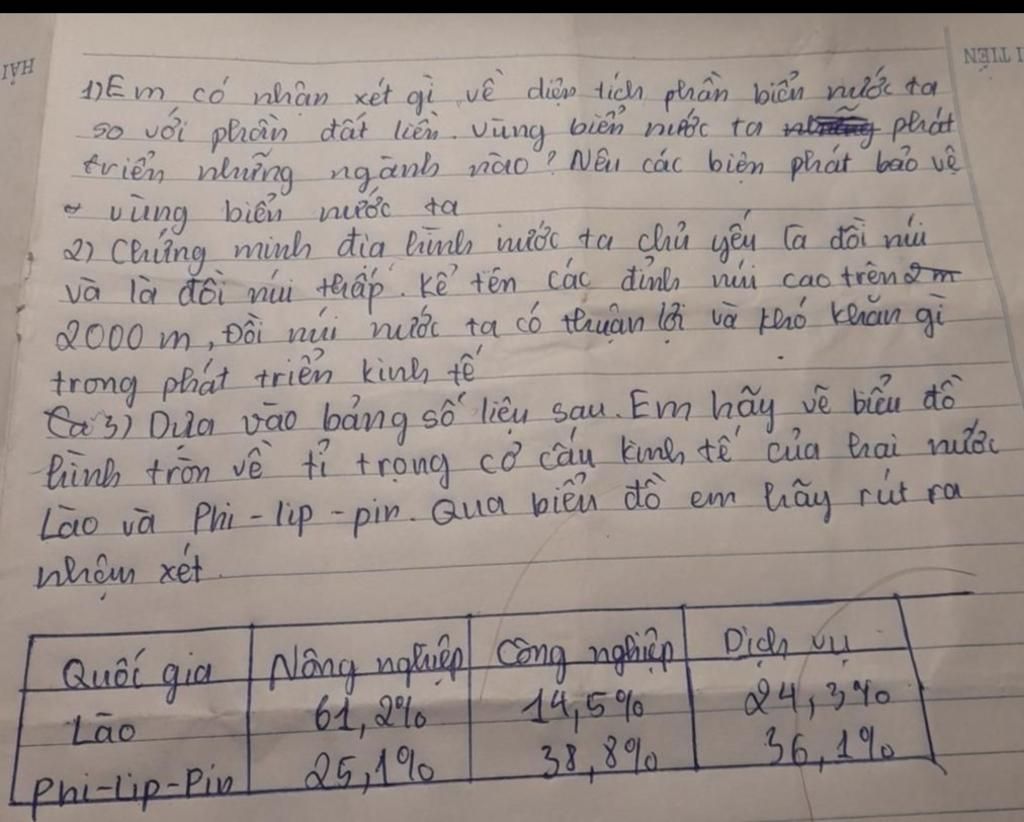 HẢI
I TIẾN
1) Em có nhận xét gì về diện tích phần biển nước ta
so với phần đất liền. Vùng biển nước ta phát
triển những ngành nào? Nêu các biện phát bảo vệ
vùng biển nước ta
2) Chứng minh địa hình nước ta chủ yếu là đồi núi
và là đồi núi thấp. Kể tên các đỉnh núi cao trên 2 m
2000 m, Đồi núi nước ta có thuận lợi và khó khăn gì
trong phát triển kinh tế
Ca 3) Dựa vào bảng số liệu sau. Em hãy vẽ biểu đồ
hình tròn về tỉ trọng cơ cấu kinh tế của hai nước
Lào và Phi-lip-pin. Qua biểu đồ em hãy rút ra
nhận xét.
Quốc gia Nông nghiệp Công nghiệp Dịch vụ
Lào 61,2% 14,5% 24,3%
Phi-lip-Pin 25,1% 38,8% 36,1%